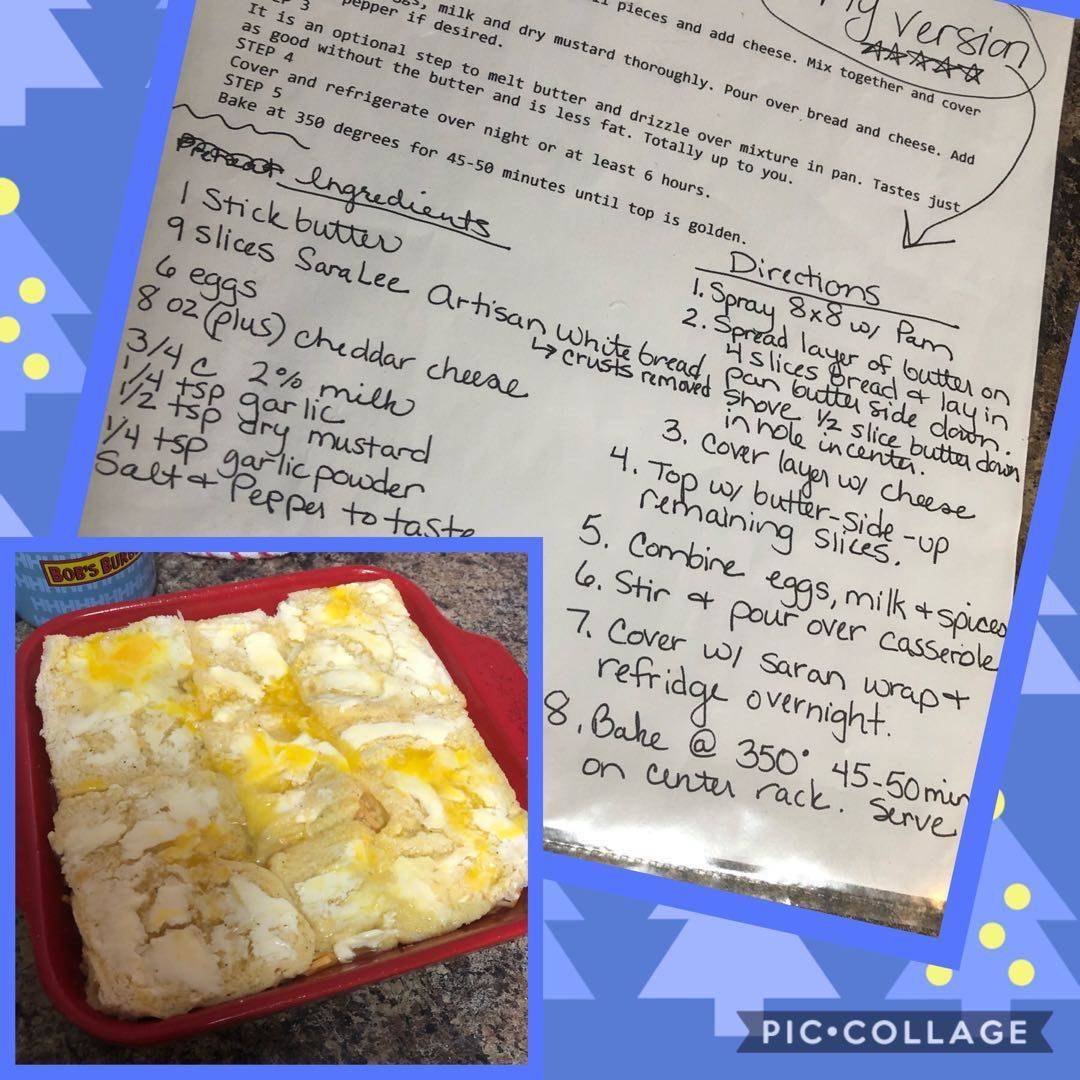 My version
pieces and add cheese. Mix together and cover
3
milk and dry mustard thoroughly. Pour over bread and cheese. Add
pepper if desired.
It is an optional step to melt butter and drizzle over mixture in pan. Tastes just
as good without the butter and is less fat. Totally up to you.
STEP 4
Cover and refrigerate over night or at least 6 hours.
STEP 5
Bake at 350 degrees for 45-50 minutes until top is golden.
Ingredients
1 Stick butter
9 slices Sara Lee Artisan White bread
↳ crusts removed
6 eggs
8 oz (plus) cheddar cheese
3/4 c 2% milk
1/4 tsp garlic
1/2 tsp dry mustard
1/4 tsp garlic powder
Salt & Pepper to taste
Directions
1. Spray 8x8 w/ Pam
2. Spread layer of butter on
4 slices bread & lay in
pan butter side down.
Shove 1/2 slice butter down
in hole in center.
3. Cover layer w/ cheese
4. Top w/ butter-side-up
remaining slices.
5. Combine eggs, milk & spices
6. Stir & pour over casserole
7. Cover w/ saran wrap &
refridge overnight.
8. Bake @ 350° 45-50 min
on center rack. Serve
BOB'S BUR
PIC•COLLAGE